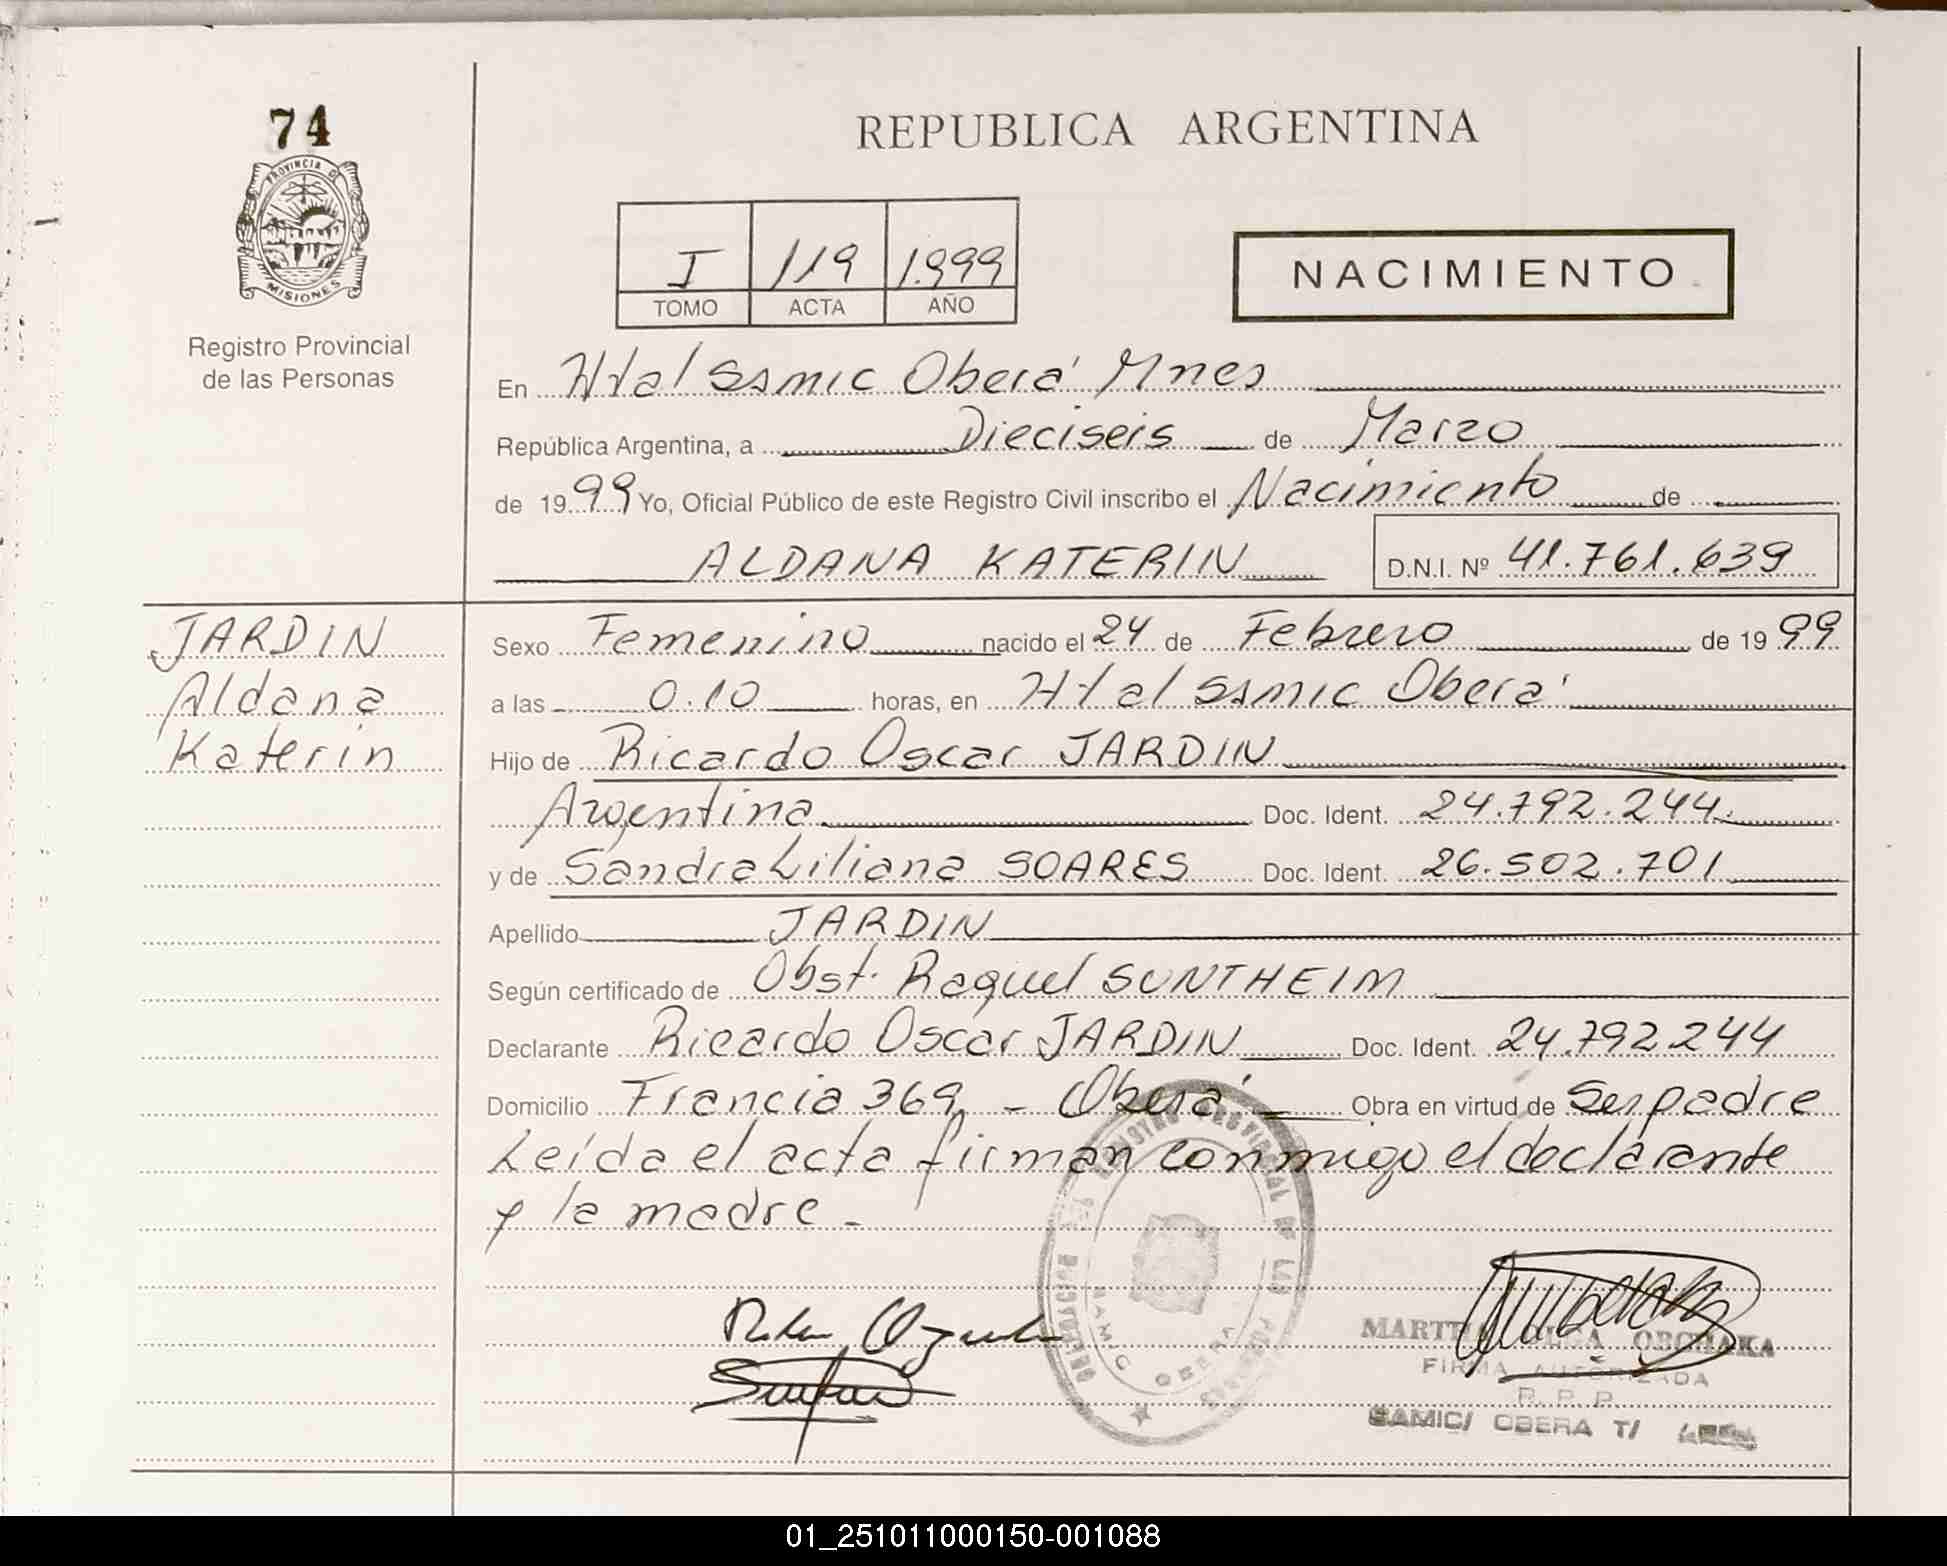 74
PROVINCIA D
MISIONES
Registro Provincial
de las Personas
REPUBLICA ARGENTINA
I 119 1.999
TOMO ACTA AÑO
NACIMIENTO
En Htal SSMIC Oberá Mnes
República Argentina, a Dieciseis de Marzo
de 1999 Yo, Oficial Público de este Registro Civil inscribo el Nacimiento de
ALDANA KATERIN D.N.I. Nº 41.761.639
JARDIN
Aldana
Katerin
Sexo Femenino nacido el 24 de Febrero de 1999
a las 0.10 horas, en Htal SSMIC Oberá
Hijo de Ricardo Oscar JARDIN
Argentina Doc. Ident. 24.792.244.
y de Sandra Liliana SOARES Doc. Ident. 26.502.701
Apellido JARDIN
Según certificado de Obst. Raquel SUNTHEIM
Declarante Ricardo Oscar JARDIN Doc. Ident. 24.792.244
Domicilio Francia 369 - Oberá Obra en virtud de Ser padre
Leída el acta firman conmigo el declarante
y la madre -
DELEGACION DEL REGISTRO PROVINCIAL DE LAS PERSONAS
SAMIC OBERA
MARTHA OLGA OBCHAKA
FIRMA AUTORIZADA
R. P. P.
SAMIC/ OBERA T/
01_251011000150-001088